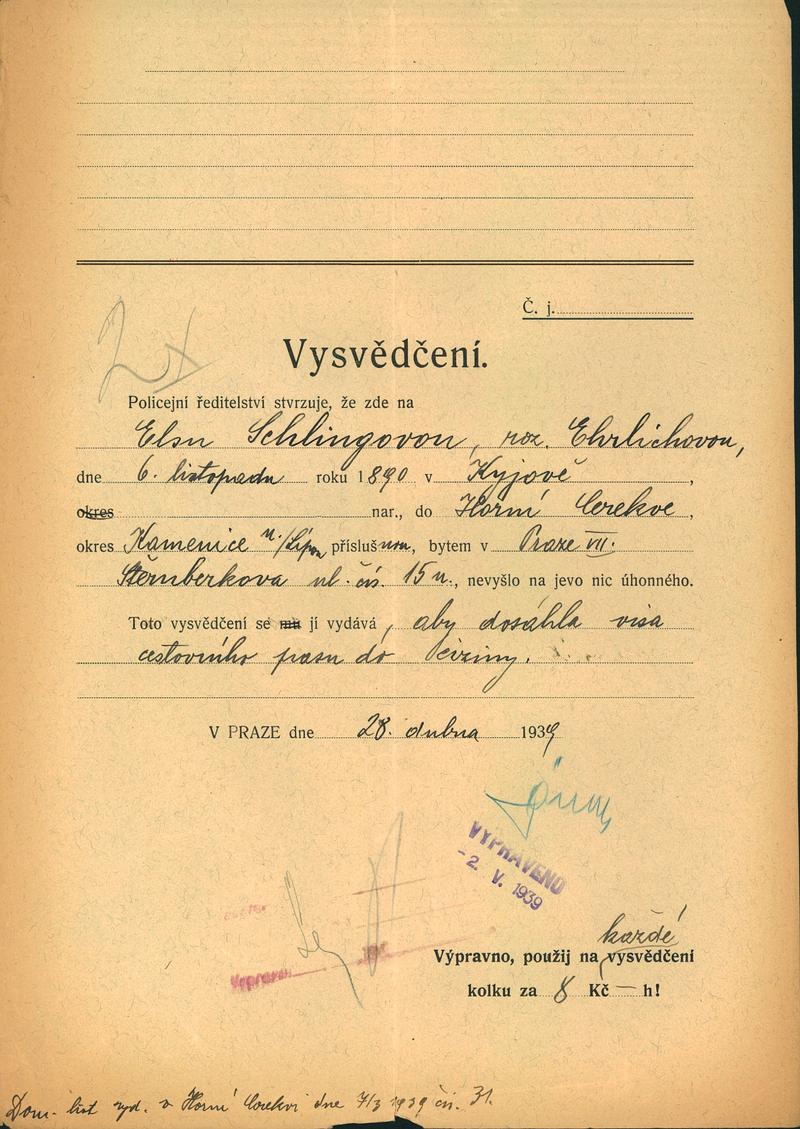 Č. j.
2x
Vysvědčení.
Policejní ředitelství stvrzuje, že zde na
Elsu Schlingovou, roz. Ehrlichovou,
dne 6. listopadu roku 1890 v Kyjově,
okres nar., do Horní Cerekve,
okres Kamenice n./Lipou příslušnou, bytem v Praze VII.
Šternberkova ul. čís. 15 n., nevyšlo na jevo nic úhonného.
Toto vysvědčení se mu jí vydává, aby dosáhla visa
cestovního pasu do ciziny.
V PRAZE dne 28. dubna 1939
VYPRAVENO
- 2. V. 1939
každé
Výpravno, použij na vysvědčení
Vypraveno
kolku za 8 Kč — h!
Dom. list vyd. v Horní Cerekvi dne 7/3 1939 čís. 31.